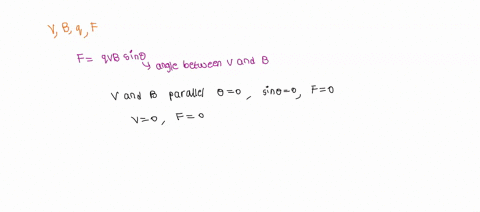 V, B, q, F
F = qVB sinθ
↳ angle between V and B
V and B parallel θ=0, sinθ=0, F=0
V=0, F=0